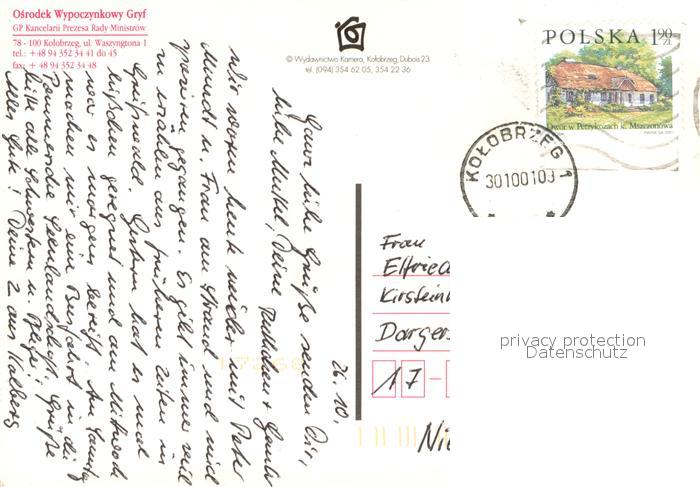 Ośrodek Wypoczynkowy Gryf
GP Kancelarii Prezesa Rady Ministrów
78 - 100 Kołobrzeg, ul. Waszyngtona 1
tel.: + 48 94 352 34 41 do 45
fax: + 48 94 352 34 48
© Wydawnictwo Kamera, Kołobrzeg, Dubois 23
tel. (094) 354 62 05, 354 22 36
POLSKA 1,90 zł
Dwór w Petrykozach k. Mszczonowa
KOŁOBRZEG 1
30100103
26.10.
Ganz liebe Grüße senden Dir,
liebe Muttel, Deine
Wir waren heute wieder mit Peter
Mundt u. Frau am Strand und sind
spazieren gegangen. Es gibt immer viel
zu erzählen aus früheren Zeiten in
Greifswald. Gestern hat es mal
ein bißchen geregnet und am Mittwoch
war es morgens bereift. Am Samstag
machen wir eine Busfahrt in die
Pommersche Seenlandschaft. Grüße
bitte alle Schwestern u.
Alles Gute! Deine 2 aus Kolberg
17268
Frau
Elfried
Kirstein
Darger
17-
Nie
privacy protection
Datenschutz